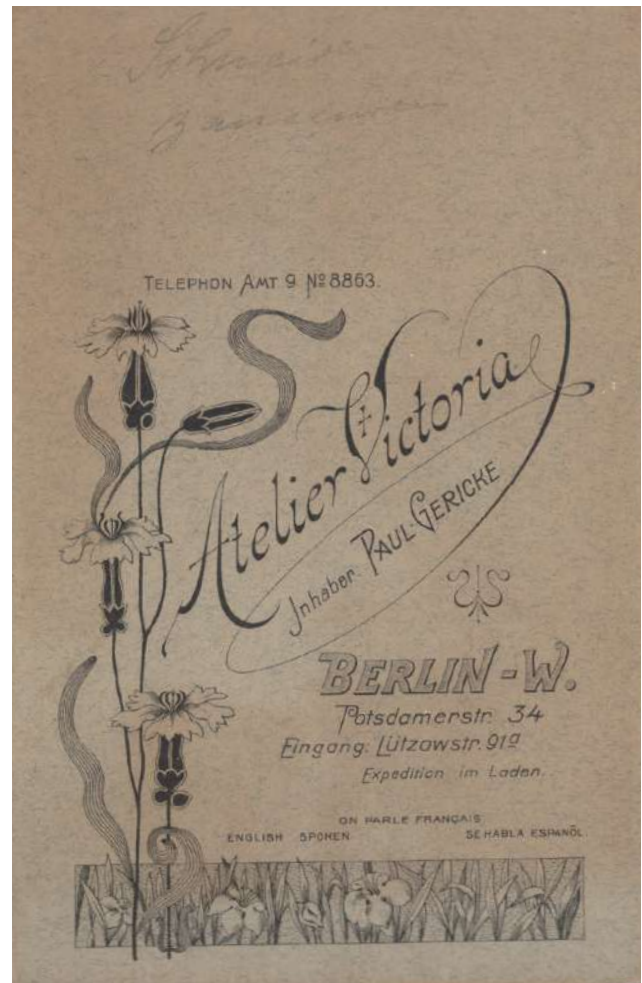 TELEPHON AMT 9 Nº 8863.
Atelier Victoria
Inhaber PAUL GERICKE
BERLIN - W.
Potsdamerstr. 34
Eingang: Lützowstr. 91a
Expedition im Laden.
ON PARLE FRANÇAIS
ENGLISH SPOKEN. SE HABLA ESPANÕL.